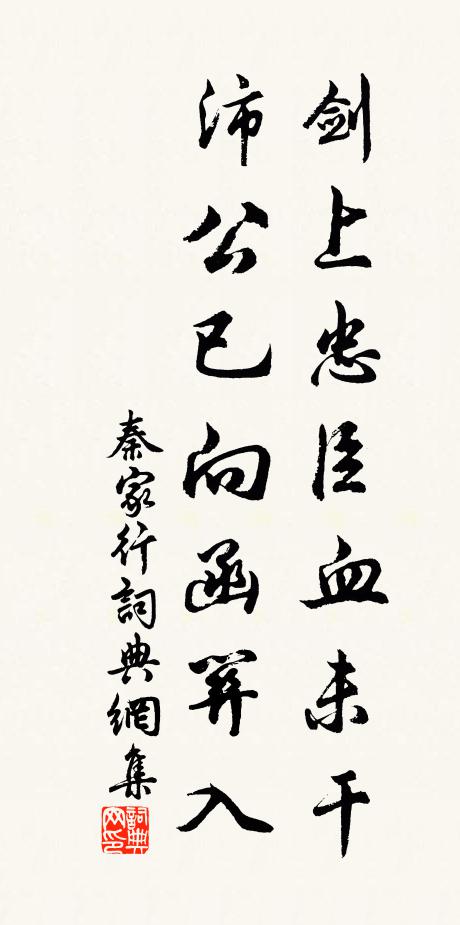 剑上忠臣血未干
沛公已向函关入
秦家行詞典網集
詞典
网印